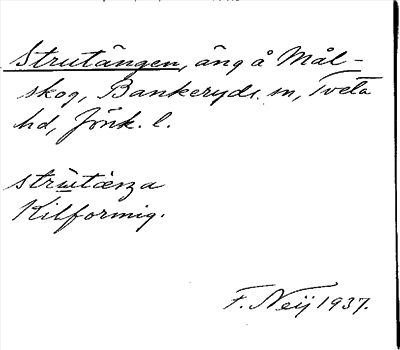 Strutängen, äng å Mål-
skog, Bankeryds sn, Tveta
hd, Jönk. l.
strùtäŋa
Kilformig.
F. Neij 1937.